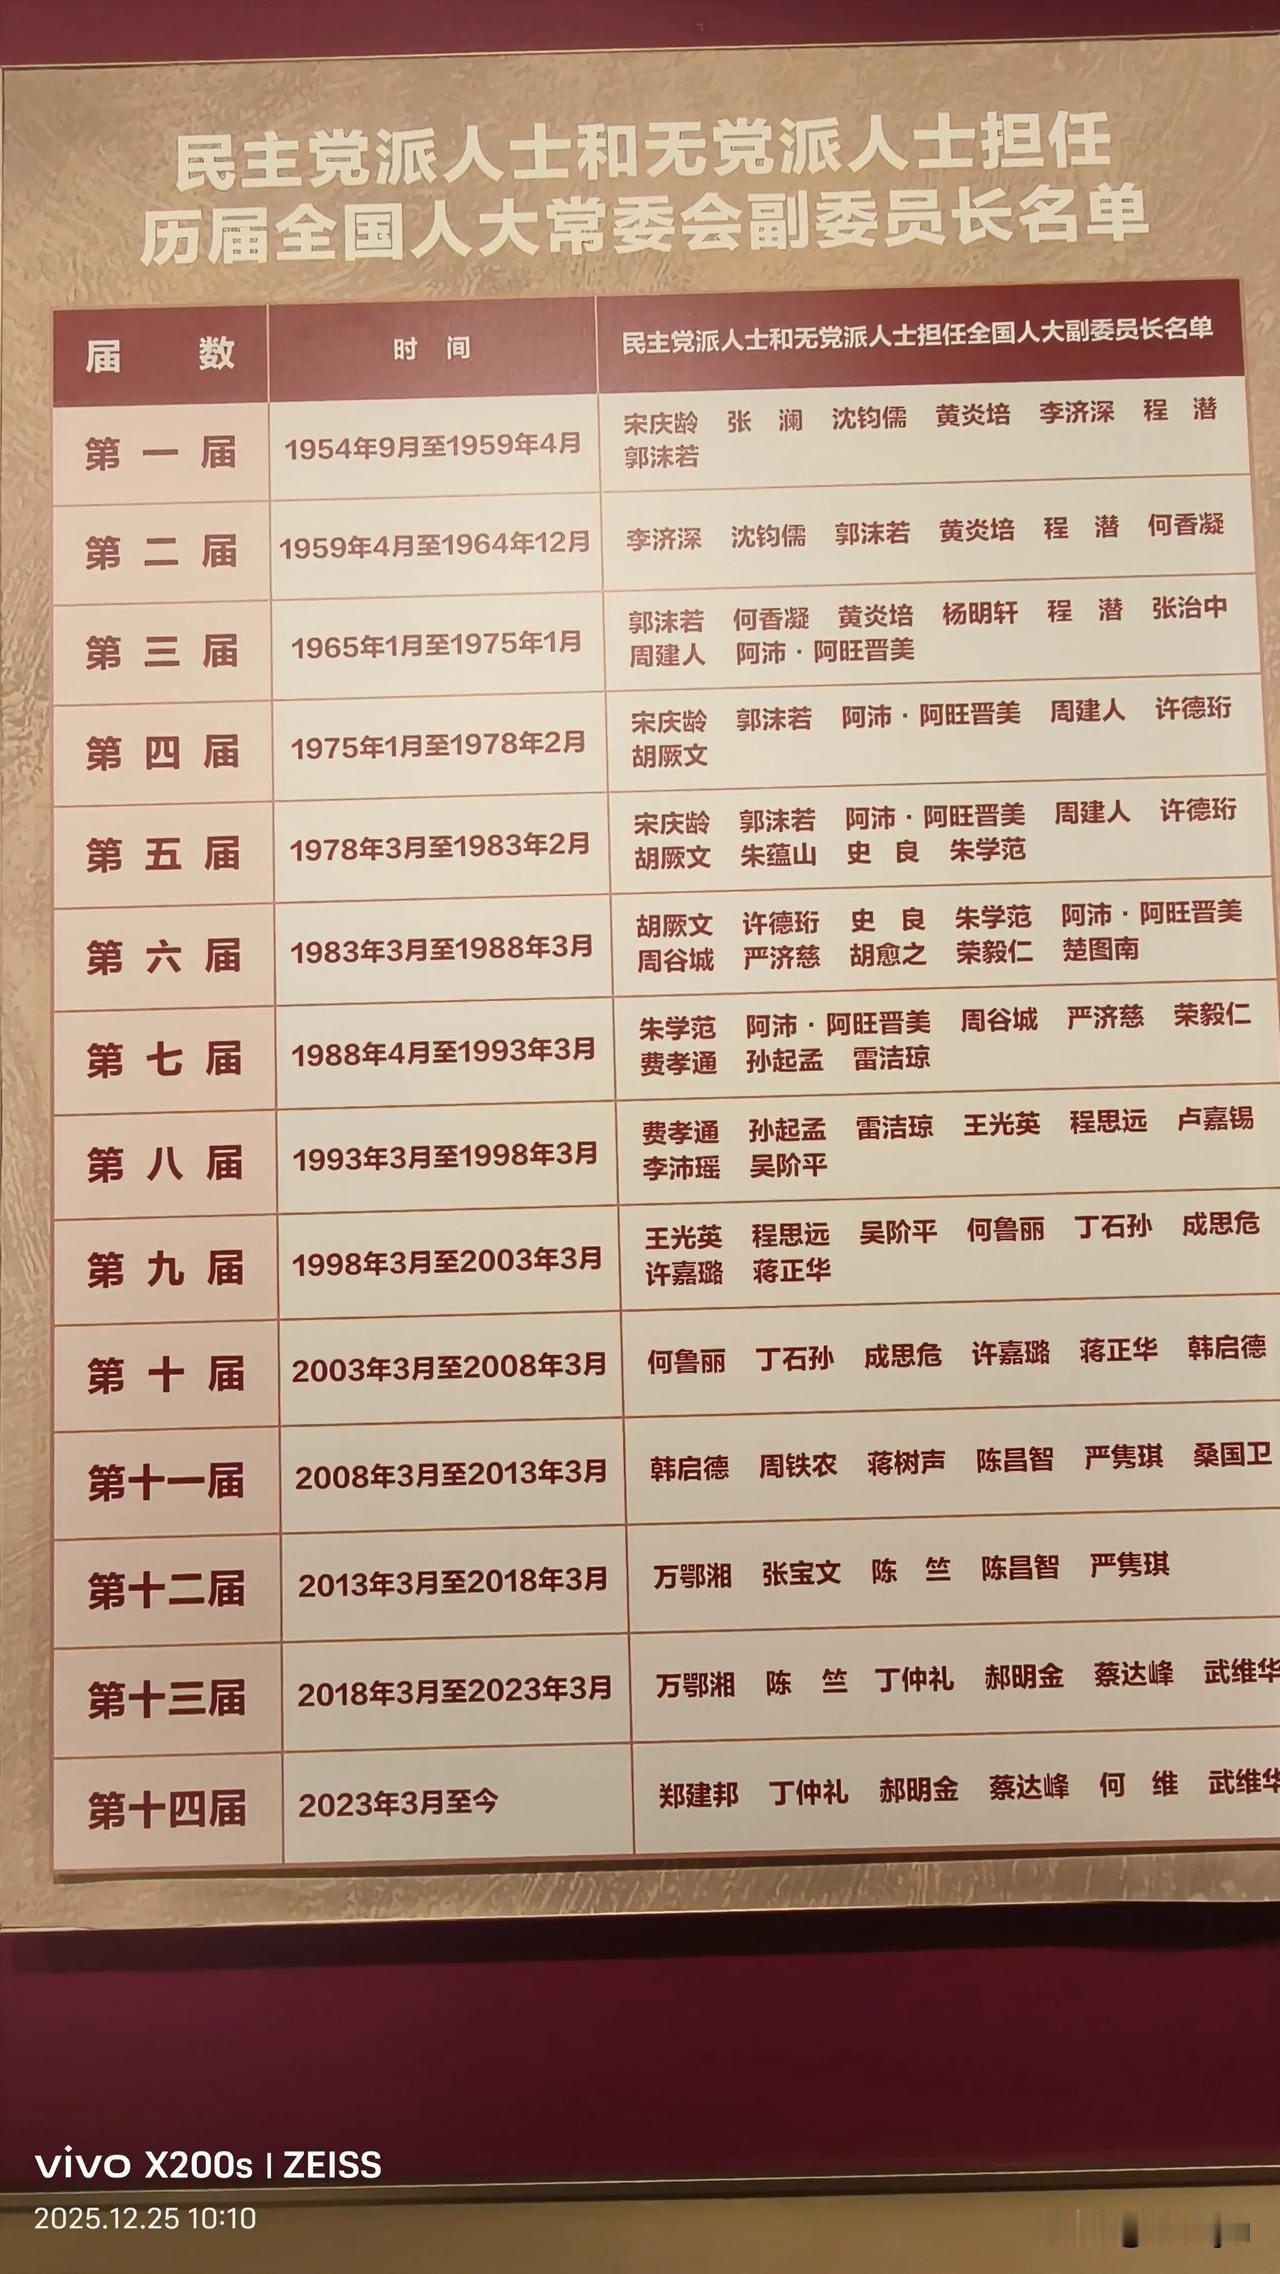 民主党派人士和无党派人士担任
历届全国人大常委会副委员长名单
届 数 时 间 民主党派人士和无党派人士担任全国人大副委员长名单
第一届 1954年9月至1959年4月 宋庆龄 张 澜 沈钧儒 黄炎培 李济深 程 潜
郭沫若
第二届 1959年4月至1964年12月 李济深 沈钧儒 郭沫若 黄炎培 程 潜 何香凝
第三届 1965年1月至1975年1月 郭沫若 何香凝 黄炎培 杨明轩 程 潜 张治中
周建人 阿沛·阿旺晋美
第四届 1975年1月至1978年2月 宋庆龄 郭沫若 阿沛·阿旺晋美 周建人 许德珩
胡厥文
第五届 1978年3月至1983年2月 宋庆龄 郭沫若 阿沛·阿旺晋美 周建人 许德珩
胡厥文 朱蕴山 史 良 朱学范
第六届 1983年3月至1988年3月 胡厥文 许德珩 史 良 朱学范 阿沛·阿旺晋美
周谷城 严济慈 胡愈之 荣毅仁 楚图南
第七届 1988年4月至1993年3月 朱学范 阿沛·阿旺晋美 周谷城 严济慈 荣毅仁
费孝通 孙起孟 雷洁琼
第八届 1993年3月至1998年3月 费孝通 孙起孟 雷洁琼 王光英 程思远 卢嘉锡
李沛瑶 吴阶平
第九届 1998年3月至2003年3月 王光英 程思远 吴阶平 何鲁丽 丁石孙 成思危
许嘉璐 蒋正华
第十届 2003年3月至2008年3月 何鲁丽 丁石孙 成思危 许嘉璐 蒋正华 韩启德
第十一届 2008年3月至2013年3月 韩启德 周铁农 蒋树声 陈昌智 严隽琪 桑国卫
第十二届 2013年3月至2018年3月 万鄂湘 张宝文 陈 竺 陈昌智 严隽琪
第十三届 2018年3月至2023年3月 万鄂湘 陈 竺 丁仲礼 郝明金 蔡达峰 武维华
第十四届 2023年3月至今 郑建邦 丁仲礼 郝明金 蔡达峰 何 维 武维华
vivo X200s | ZEISS
2025.12.25 10:10